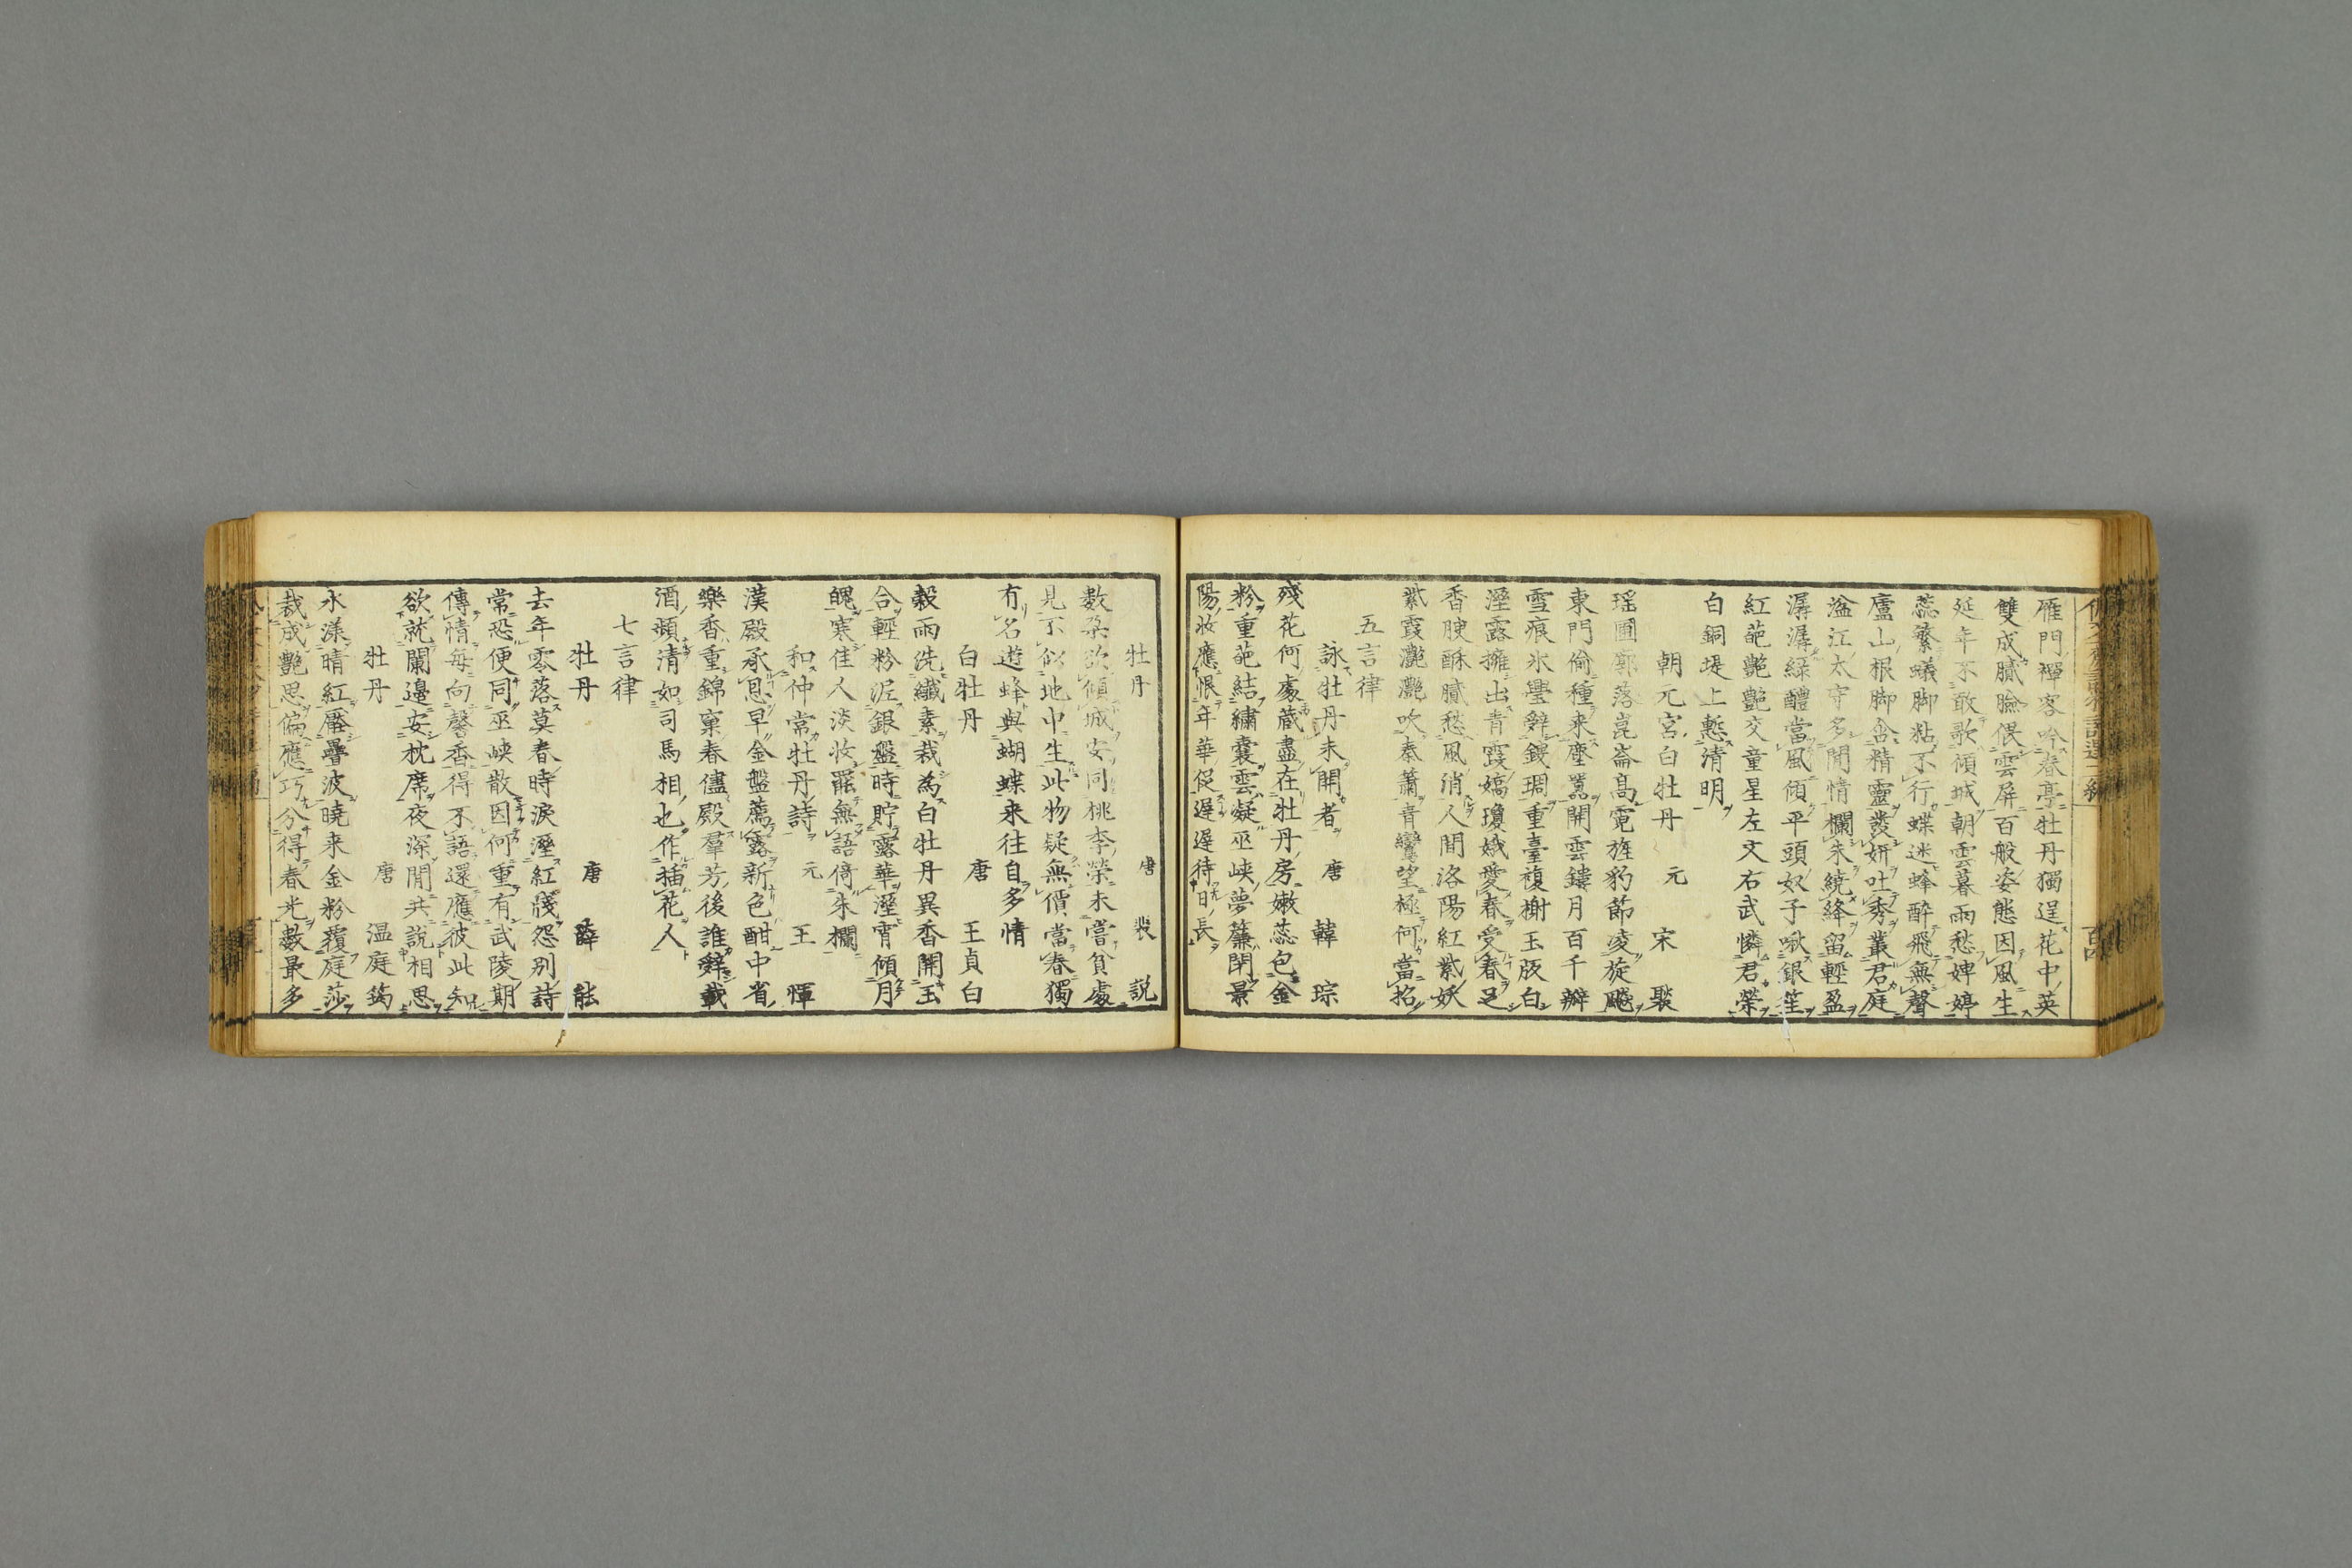 雁門禪客吟春亭牡丹獨逞花中英
雙成膩臉偎雲屏百般姿態因風生
延年不敢歌傾城朝雲暮雨愁婢婷
蕊繁蟻脚粘不行蝶迷蜂醉飛無聲
廬山根脚含精靈發妍吐秀叢君庭
湓江太守多閒情欄朱繞絳留輕盈
潺潺綠醴當風傾平頭奴子啾銀笙
紅葩艷艷交童星左文右武憐君榮
白銅堤上慙清明
朝元宮白牡丹　元　宋　褧
瑤圃廓落崑崙高霓旌豹節凌旋飈
東門偷種来塵嚣開雲鏤月百千瓣
雪痕氷璺辭鍐琱重臺複榭玉版白
溼露擁出青霞嬌瓊娥愛春受春足
香腴酥膩愁風消人間洛陽紅紫妖
紫霞灔灔吹秦蕭青鸞望極何當招
五言律
詠牡丹未開者　唐　韓　琮
殘花何處藏盡在牡丹房嫩蕊包金
粉重葩結繡囊雲凝巫峡夢簾閉景
陽妝應恨年華促遲遲待日長
牡丹　唐　裴　説
數朶欲傾城安同桃李榮未嘗貧處
見不似地中生此物疑無價當春獨
有名遊蜂與蝴蝶来往自多情
白牡丹　唐　王貞白
榖雨洗纖素裁為白牡丹異香開玉
合輕粉泥銀盤時貯露華溼宵傾月
魄寒佳人淡妝罷無語倚朱欄
和仲常牡丹詩　元　王　惲
漢殿承恩早金盤薦露新色酣中省
樂香重錦窠春儘殿羣芳後誰辭載
酒頻清如司馬相也作插花人
七言律
牡丹　唐　薛　能
去年零落莫春時淚溼紅牋怨別詩
常恐便同巫峡散因何重有武陵期
傳情每向馨香得不語還應彼此知
欲就闌邊安枕席夜深閒共説相思
牡丹　唐　温庭筠
水漾晴紅壓疊波曉来金粉覆庭莎
裁成艷思偏應巧分得春光數最多